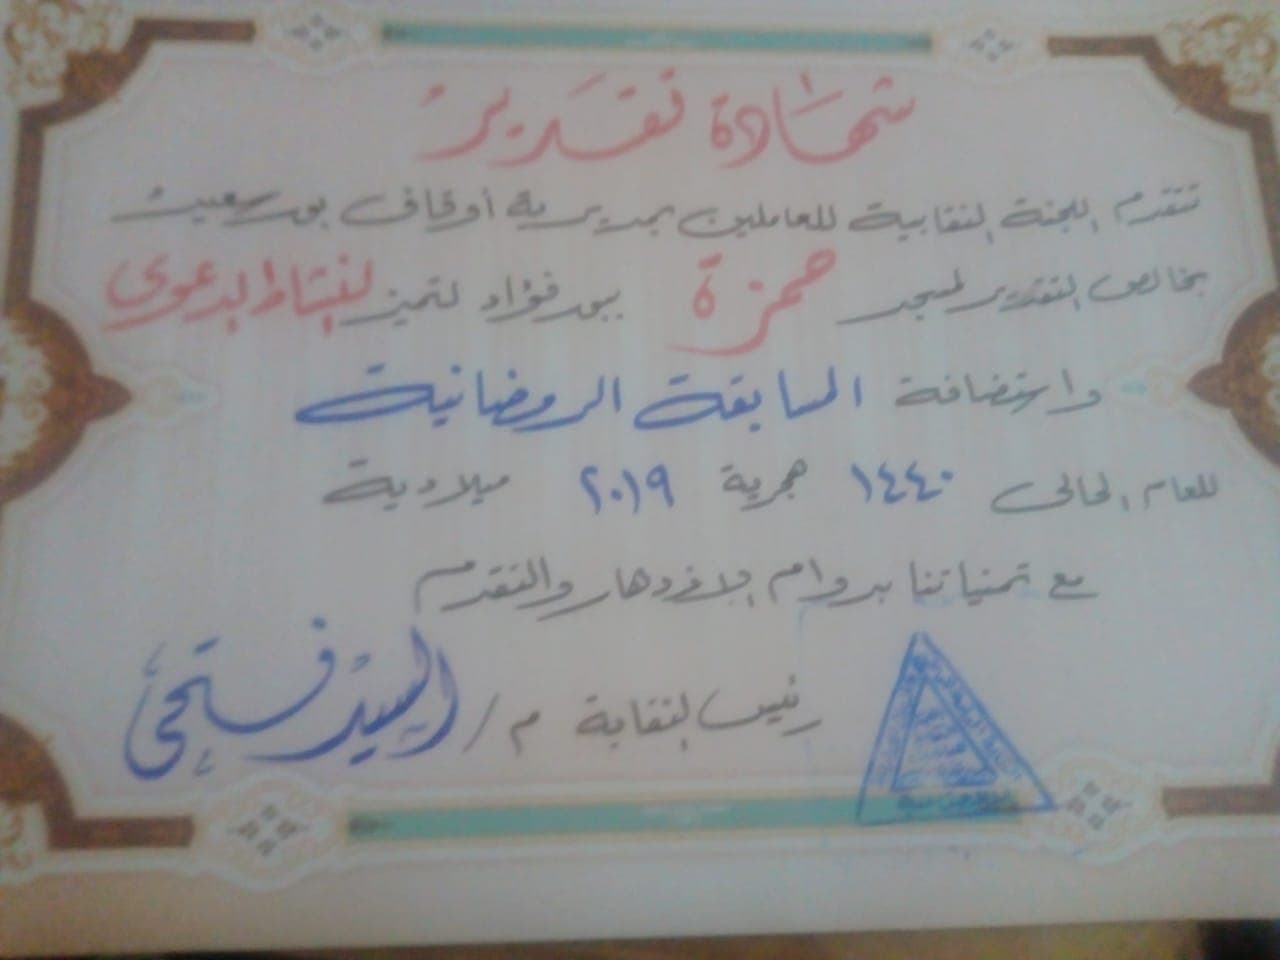 شهادة تقدير
تتقدم اللجنة النقابية للعاملين بمديرية أوقاف بورسعيد
بخالص التقدير لمسجد حمزة ببورفؤاد لتميز النشاط الدعوى
واستضافة المسابقة الرمضانية
للعام الحالى ١٤٤٠ هجرية ٢٠١٩ ميلادية
مع تمنياتنا بدوام الازدهار والتقدم
رئيس النقابة م/ السيد فتحى